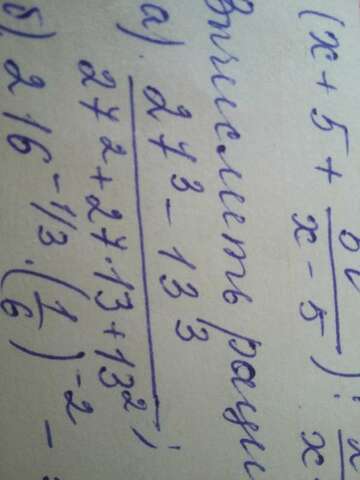 (x + 5 + / x - 5) : x
Вычислить раци
а) 27³ - 13³ / 27² + 27·13 + 13² ;
б) 216^-1/3 · (1/6)^-2 -